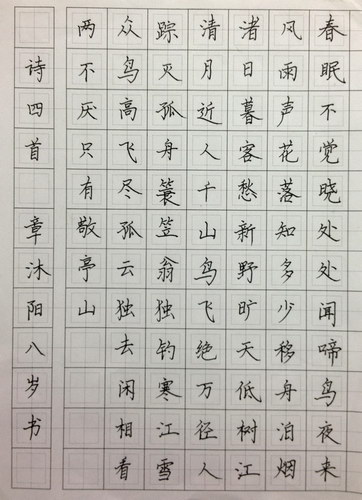 春眠不觉晓处处闻啼鸟夜来
风雨声花落知多少移舟泊烟
渚日暮客愁新野旷天低树江
清月近人千山鸟飞绝万径人
踪灭孤舟蓑笠翁独钓寒江雪
众鸟高飞尽孤云独去闲相看
两不厌只有敬亭山
诗四首 章沐阳八岁书